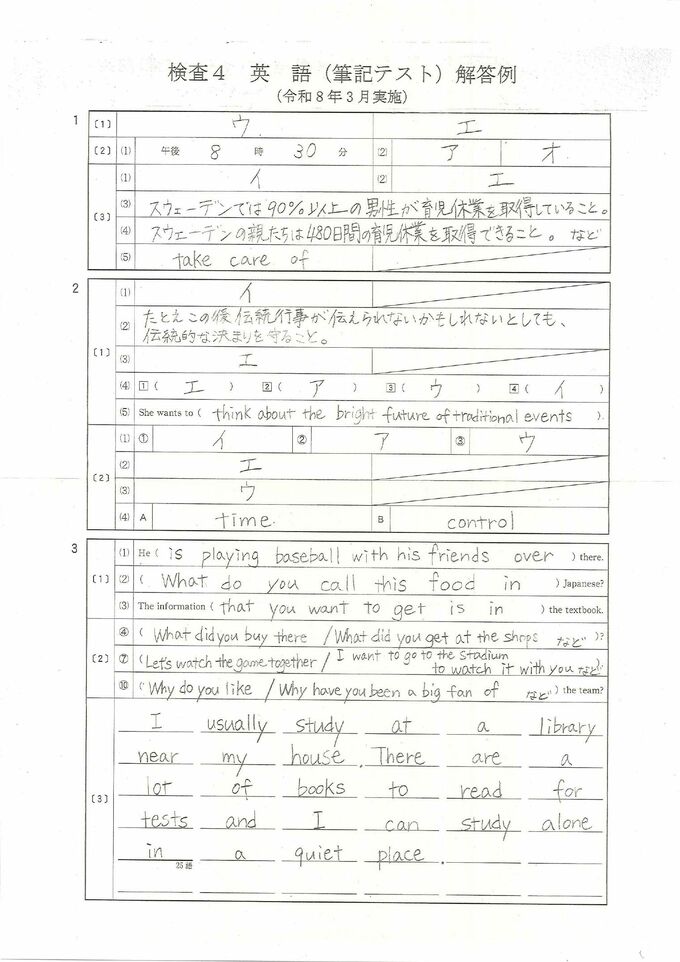 検査4 英 語 (筆記テスト) 解答例
(令和8年3月実施)
1
〔1〕 ウ エ
〔2〕 (1) 午後 8 時 30 分 (2) ア オ
〔3〕 (1) イ (2) エ
(3) スウェーデンでは90%以上の男性が育児休業を取得していること。
(4) スウェーデンの親たちは480日間の育児休業を取得できること。 など
(5) take care of
2
〔1〕 (1) イ
(2) たとえこの後伝統行事が伝えられないかもしれないとしても、
伝統的な決まりを守ること。
(3) エ
(4) 1 ( エ ) 2 ( ア ) 3 ( ウ ) 4 ( イ )
(5) She wants to ( think about the bright future of traditional events ).
〔2〕 (1) ① イ ② ア ③ ウ
(2) エ
(3) ウ
(4) A time B control
3
〔1〕 (1) He ( is playing baseball with his friends over ) there.
(2) ( What do you call this food in ) Japanese?
(3) The information ( that you want to get is in ) the textbook.
〔2〕 ④ ( What did you buy there / What did you get at the shops など )?
⑦ ( Let's watch the game together / I want to go to the stadium
to watch it with you など )
⑩ ( Why do you like / Why have you been a big fan of など ) the team?
〔3〕 I usually study at a library
near my house. There are a
lot of books to read for
tests and I can study alone
in a quiet place.
25語